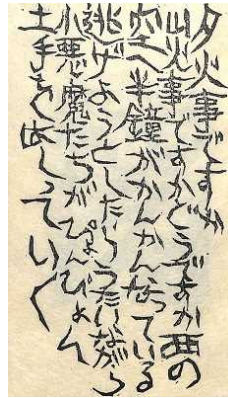 夕火事ですか
山火事ですかどうですか西の
空へ半鐘がかんかんなっている
逃げようとしたらうたいながら
小悪魔たちがぴょんぴょん
土手をはしっていく